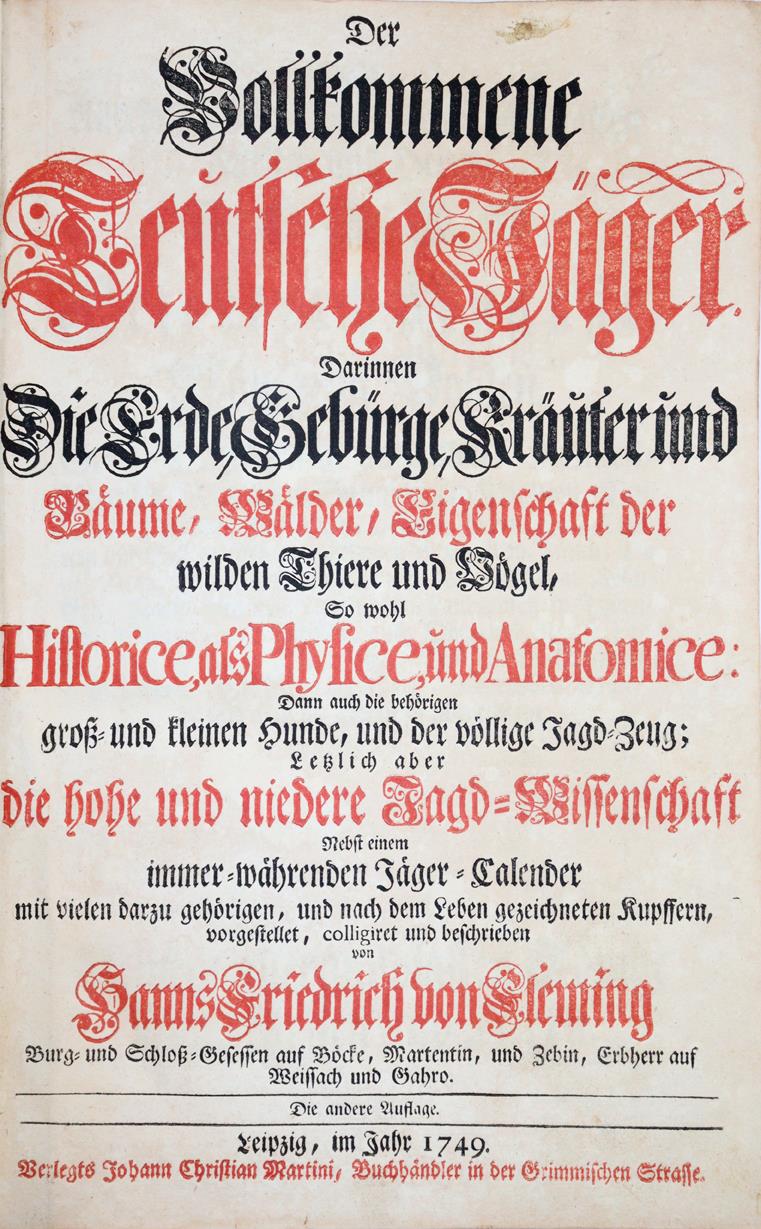 Der
Vollkommene
Teutsche Jäger.
Darinnen
Die Erde, Gebürge, Kräuter und
Bäume, Wälder, Eigenschaft der
wilden Thiere und Vögel,
So wohl
Historice, als Physice, und Anatomice:
Dann auch die behörigen
groß- und kleinen Hunde, und der völlige Jagd-Zeug;
Letzlich aber
die hohe und niedere Jagd-Wissenschaft
Nebst einem
immer-währenden Jäger-Calender
mit vielen darzu gehörigen, und nach dem Leben gezeichneten Kupffern,
vorgestellet, colligiret und beschrieben
von
Hanns Friedrich von Fleming
Burg- und Schloß-Gesessen auf Böcke, Martentin, und Zebin, Erbherr auf
Weissach und Gahro.
Die andere Auflage.
Leipzig, im Jahr 1749.
Verlegts Johann Christian Martini, Buchhändler in der Grimmischen Strasse.